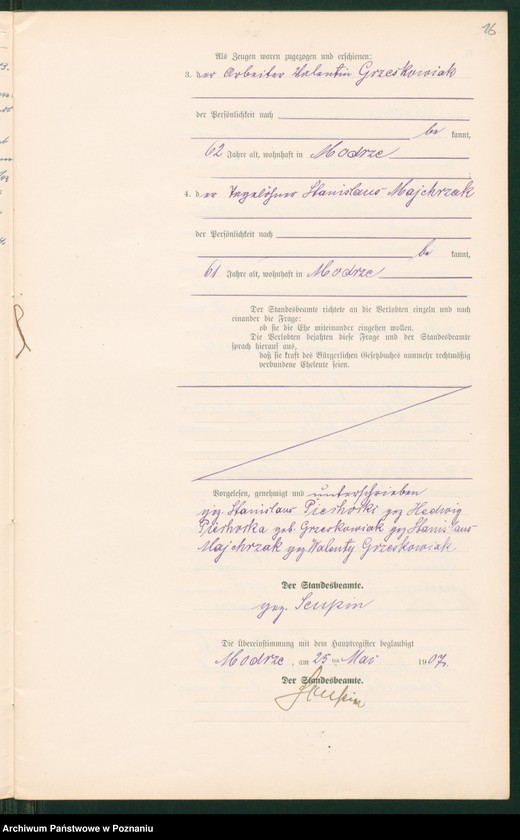 16
Als Zeugen waren zugezogen und erschienen:
3. der Arbeiter Valentin Grzeskowiak
der Persönlichkeit nach
be kannt,
62 Jahre alt, wohnhaft in Modrze
4. der Tagelöhner Stanislaus Majchrzak
der Persönlichkeit nach
be kannt,
61 Jahre alt, wohnhaft in Modrze
Der Standesbeamte richtete an die Verlobten einzeln und nach
einander die Frage:
ob sie die Ehe miteinander eingehen wollen.
Die Verlobten bejahten diese Frage und der Standesbeamte
sprach hierauf aus,
daß sie kraft des Bürgerlichen Gesetzbuches nunmehr rechtmäßig
verbundene Eheleute seien.
Vorgelesen, genehmigt und unterschrieben
gez. Stanislaus gez Hedwig
geb. Grzeskowiak gez Stanislaus
Majchrzak gez Walenty Grzeskowiak
Der Standesbeamte.
gez.
Die Übereinstimmung mit dem Hauptregister beglaubigt
Modrze, am 25 ten Mai 1907.
Der Standesbeamte.
Archiwum Państwowe w Poznaniu